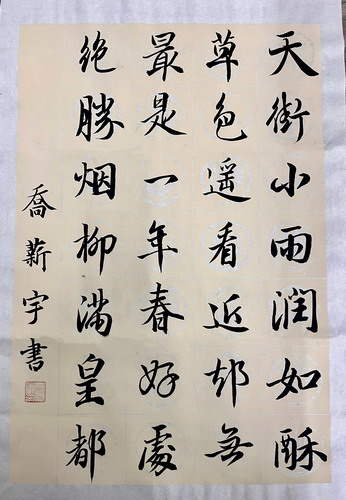 天街小雨潤如酥
草色遥看近却無
最是一年春好處
绝勝烟柳滿皇都
喬蕲宇書